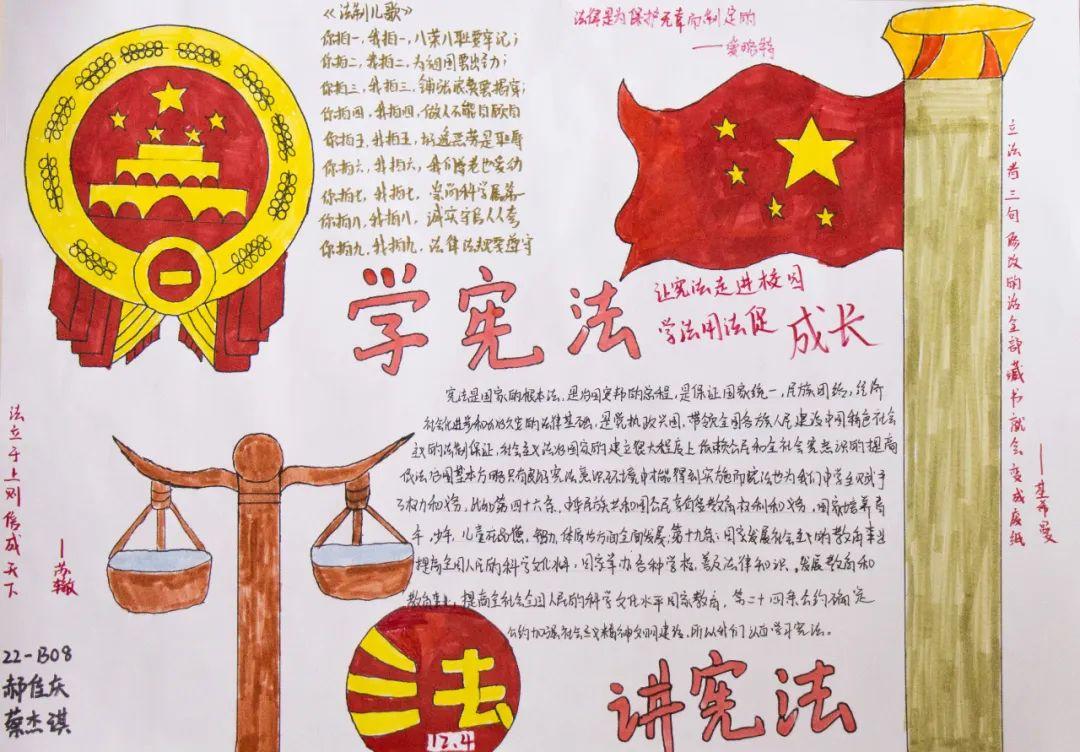 《法制儿歌》
你拍一，我拍一，八荣八耻要牢记；
你拍二，我拍二，为祖国要出力；
你拍三，我拍三，
你拍四，我拍四，做人不能自顾自
你拍五，我拍五，好逸恶劳是耻辱
你拍六，我拍六，我们尊老也爱幼
你拍七，我拍七，崇尚科学属第一
你拍八，我拍八，诚实守信人人夸
你拍九，我拍九，法律法规要遵守
法律是为保护无辜而制定的
——爱略特
学宪法
让宪法走进校园
学法用法促成长
立法者三句修改的话全部藏书就会变成废纸
——基希曼
宪法是国家的根本法，是治国安邦的总章程，是保证国家统一，民族团结，经济
社会化进步和长治久安的法律基础，是党执政兴国，带领全国各族人民建设中国特色社会
主义的法制保证，社会主义法治国家的建立很大程度上依赖公民和全社会宪法意识的提高
依法治国基本方略只有在宪法意识环境中才能得到实施而宪法也为我们中学生赋予
了权力和义务，比如第四十六条，中华民族共和国公民享有受教育权利和义务，国家培养青
年，少年，儿童在品德，智力，体质等方面全面发展；第十九条；国家发展社会主义的教育事业
提高全国人民的科学文化水平，国家举办各种学校，普及法律知识。发展教育和
教育事业，提高全社会全国人民的科学文化水平国家教育，第二十四条公约确定
公约加强社会主义精神文明建设，所以我们认真学习宪法。
法立于上则俗成天下
——苏辙
22-B08
郝佳庆
蔡杰谋
法
12.4
讲宪法